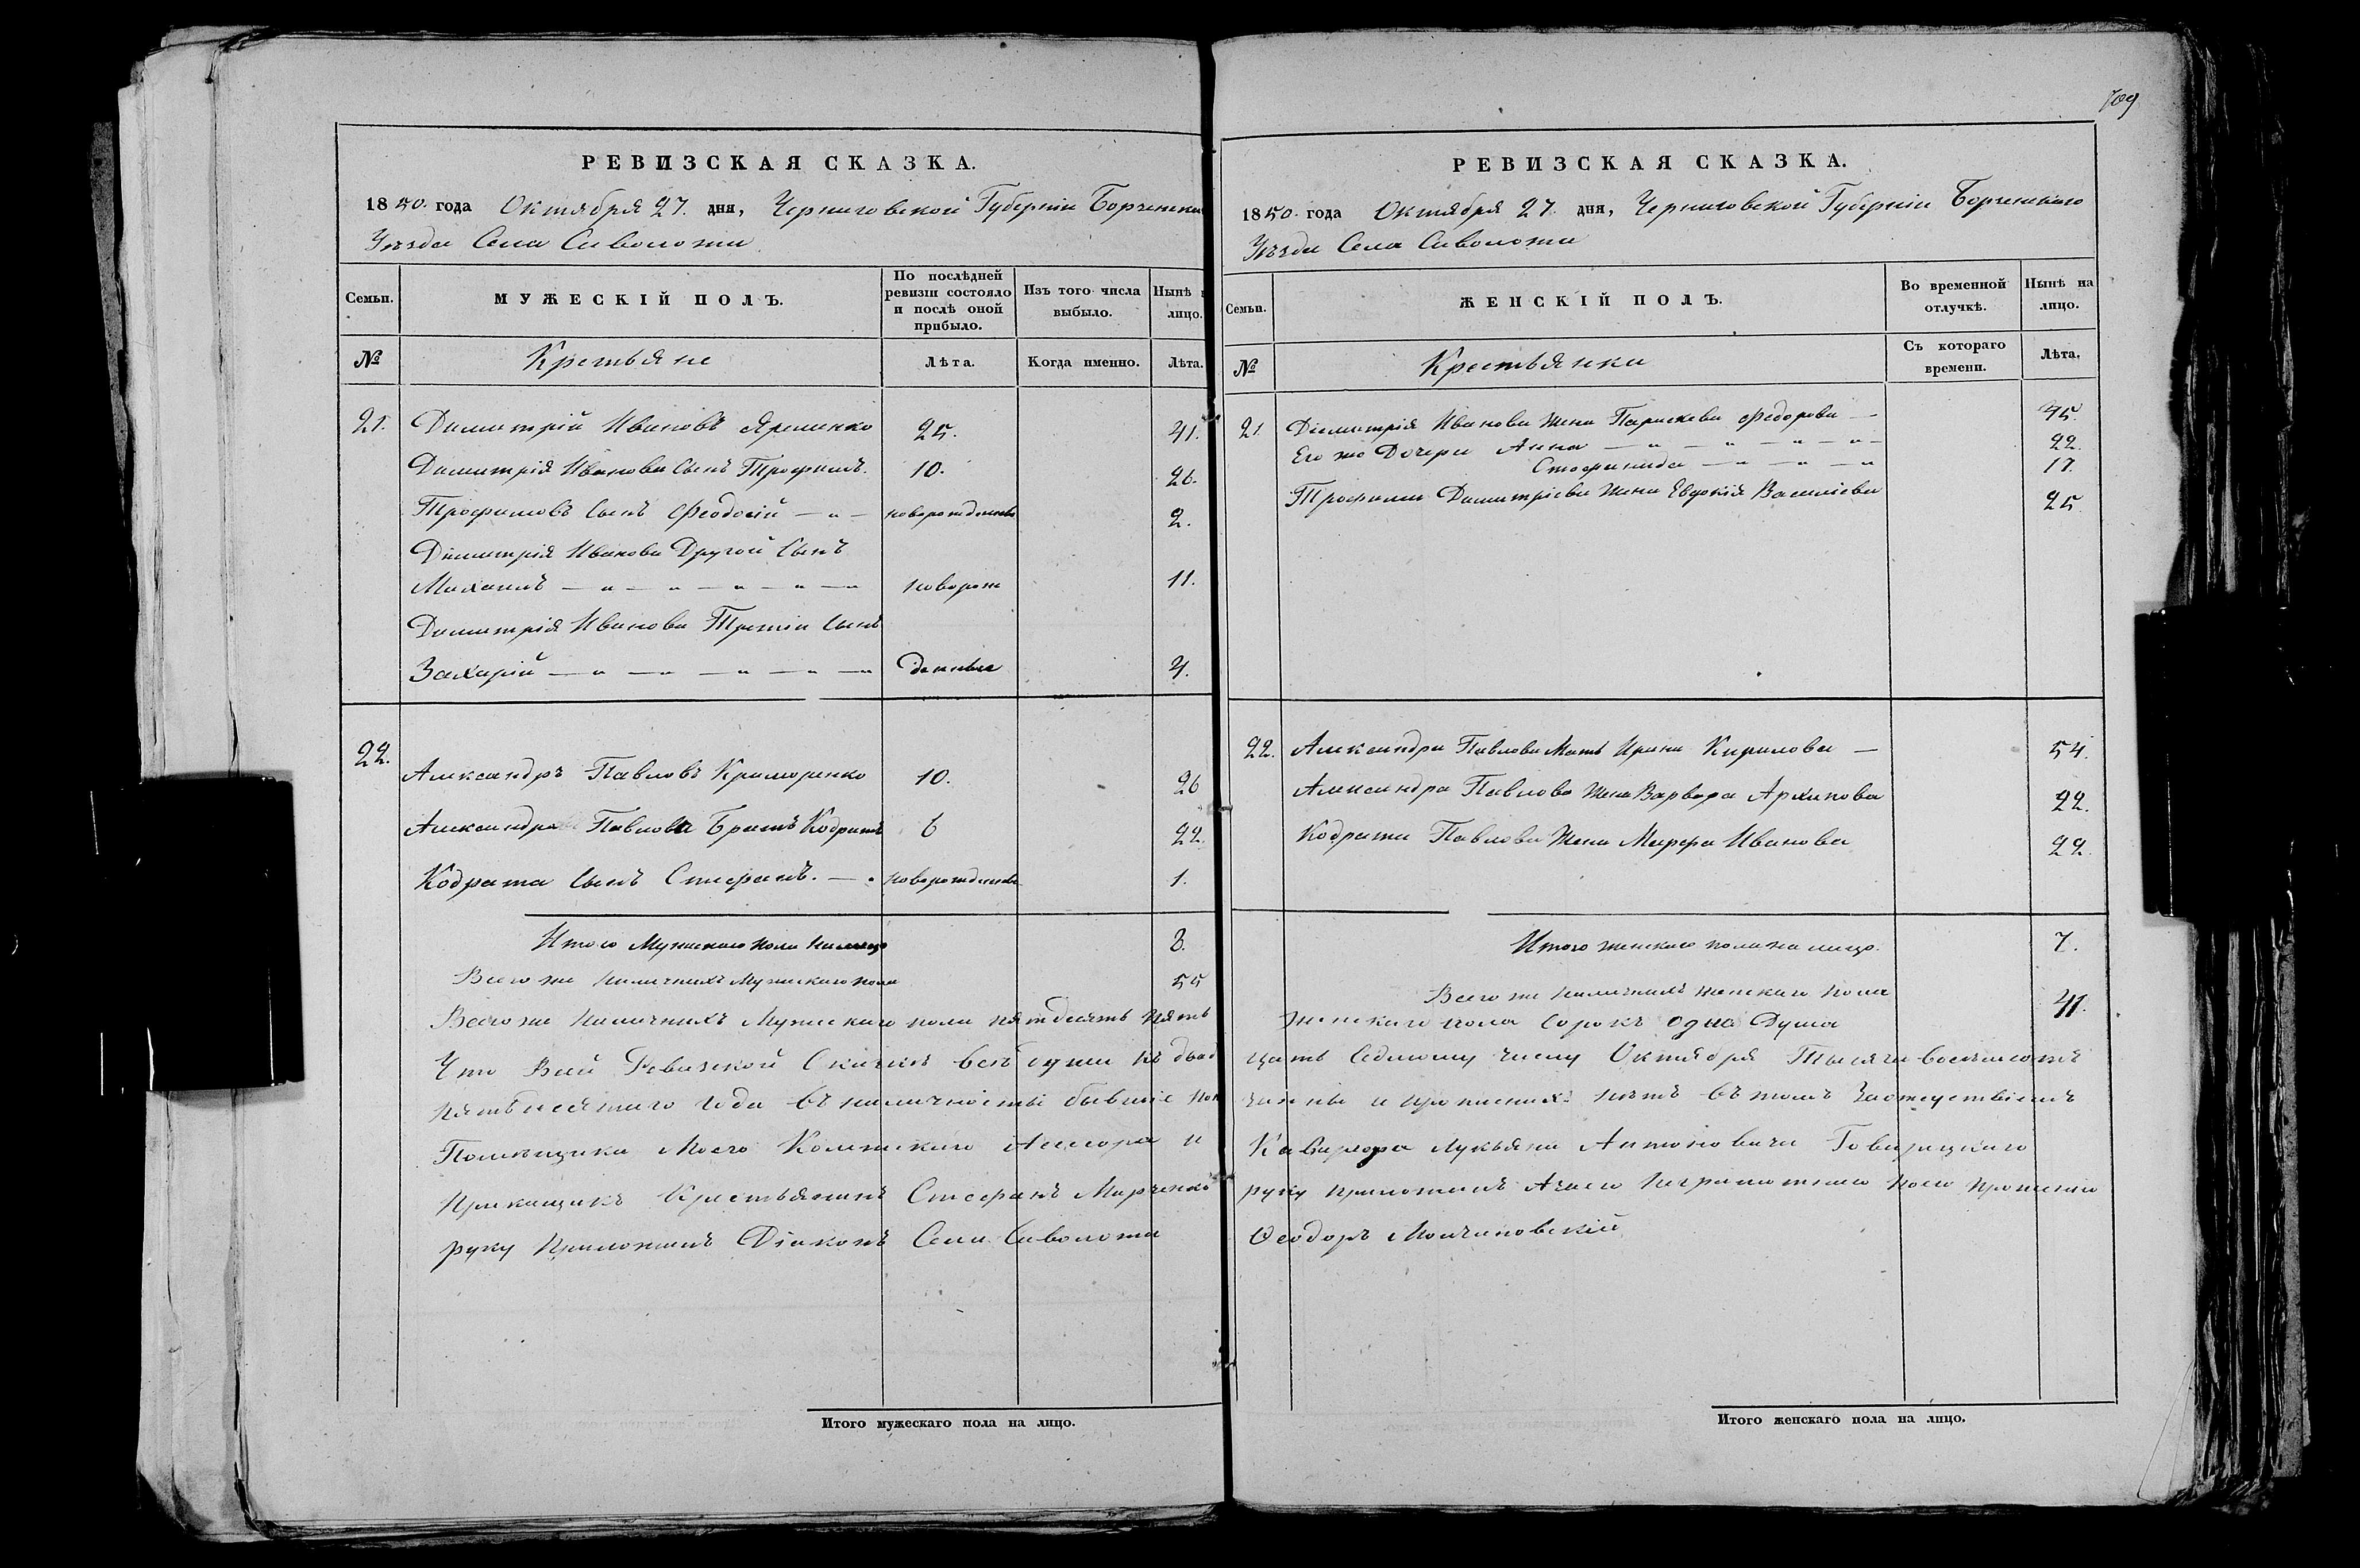 РЕВИЗСКАЯ СКАЗКА.
1850 года Октября 27. дня, Черниговской Губерніи Борзенска
Уѣзда Села Сиволожи
Семьи.
МУЖЕСКІЙ ПОЛЪ.
По послѣдней ревизіи состояло и послѣ оной прибыло.
Изъ того числа выбыло.
Нынѣ лицо.
№
Крестьяне
Лѣта.
Когда именно.
Лѣта.
21. Димитрій Ивановъ Яременко 25. 41.
Димитрія Иванова Сынъ Трофимъ. 10. 26.
Трофимовъ Сынъ Феодосій — „ — новорожденны 2.
Димитрія Иванова Другой Сынъ
Михаилъ — „ — „ — „ — „ — „ новорож 11.
Димитрія Иванова Третій Сынъ
Захарій — „ — „ — „ — „ 4.
22.
Александръ Павловъ Краморенко 10. 26
Александра Павлова Братъ Кодратъ 6 22.
Кодрата Сынъ Стефанъ. — новорожденны 1.
Итого Мужескаго пола налицо 8.
Всего же наличныхъ Мужескаго пола 55
Всего же наличныхъ Мужескаго пола пятдесятъ пять
Что Всей Ревизской Сказкѣ всѣ души къ двад
пятьдесятаго года въ наличности бывшіе пок
Помѣщика Моего Колежскаго Асесора и
Прикащикъ Крестьянинъ Стефанъ Марченко
руку Приложилъ Діаконъ Села Сиволожи
Итого мужескаго пола на лицо.
709
РЕВИЗСКАЯ СКАЗКА.
1850 года Октября 27. дня, Черниговской Губерніи Борзенскаго
Уѣзда Села Сиволожи
Семьи.
ЖЕНСКІЙ ПОЛЪ.
Во временной отлучкѣ.
Нынѣ на лицо.
№
Крестьянки
Съ котораго времени.
Лѣта.
21. Димитрія Иванова Жена Параскева Федорова — 45.
Его же Дочери Анна — „ — „ — „ — „ — 22.
Стефанида — „ — „ — „ 17.
Трофима Димитріева Жена Евдокія Василіева 25.
22. Александра Павлова Мать Ирина Кирилова — 54.
Александра Павлова Жена Варвара Архипова 22.
Кодрата Павлова Жена Марфа Иванова 22.
Итого женскаго пола на лицо. 7.
Всего же наличныхъ женскаго пола 41.
женскаго пола Сорокъ одна Душа
цать Седмому числу Октября Тысяча восемсотъ
заны и прописныхъ нѣтъ въ томъ Заотсутствіемъ
Кавалера Лукьяна Антоновича
руку приложилъ Неграмотнаго
Феодоръ Молчановскій
Итого женскаго пола на лицо.